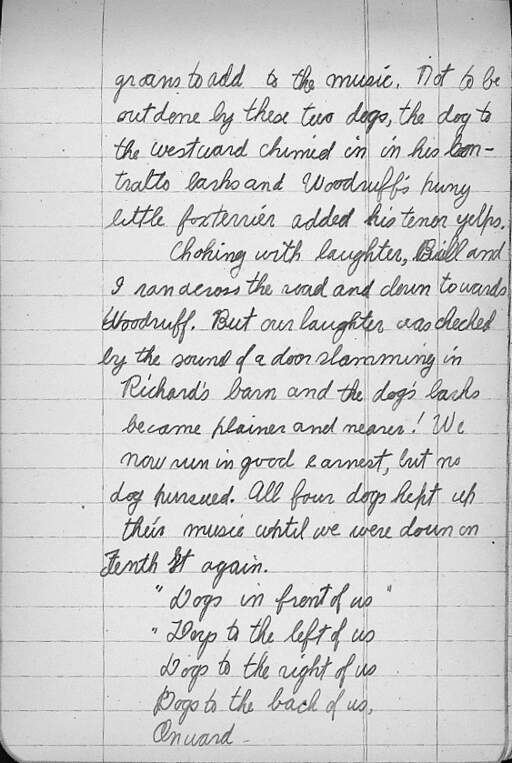 groans to add to the music. Not to be
outdone by these two dogs, the dog to
the westward chimed in in his con-
tralto barks and Woodruff's puny
little foxterrier added his tenor yelps.
Choking with laughter, Bill and
I ran across the road and down towards
Woodruff. But our laughter was checked
by the sound of a door slamming in
Richard's barn and the dog's barks
became plainer and nearer! We
now run in good earnest, but no
dog pursued. All four dogs kept up
their music until we were down on
Tenth St again.
"Dogs in front of us"
"Dogs to the left of us
Dogs to the right of us
Dogs to the back of us,
Onward -